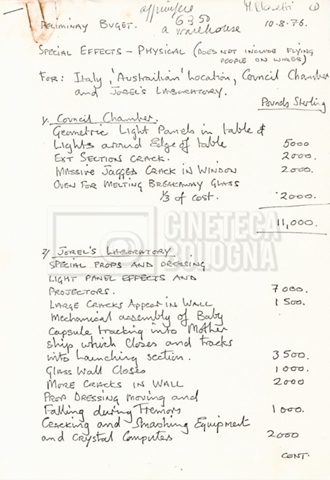 6350
a warehouse
10-8-76.
PRELIMINAY BUGET.
SPECIAL EFFECTS - PHYSICAL (DOES NOT INCLUDE FLYING
PEOPLE ON WIRES)
FOR: Italy, 'Australian' Location, Council Chamber
and JOREL'S LABORATORY.
Pounds Sterling
1/ Council Chamber.
Geometric Light Panels in table &
Lights around Edge of table 5000
EXT SECTION CRACK. 2000.
MASSIVE JAGGED CRACK IN WINDOW 2000.
OVEN FOR MELTING BREAKAWAY GLASS
1/3 of cost. 2000
11,000.
CINETECA
BOLOGNA
2/ JOREL'S LABORATORY
SPECIAL PROPS AND DRESSING
LIGHT PANEL EFFECTS AND
PROJECTORS. 7000.
LARGE CRACKS APPEAR IN WALL 1500.
Mechanical assembly of Baby
Capsule tracking into Mother
ship which closes and tracks
into Launching section. 3500.
GLASS WALL CLOSES 1000.
MORE CRACKS IN WALL 2000
PROP DRESSING moving and
Falling during Tremors 1000.
Cracking and Smashing Equipment
and Crystal Computer 2000
CONT.